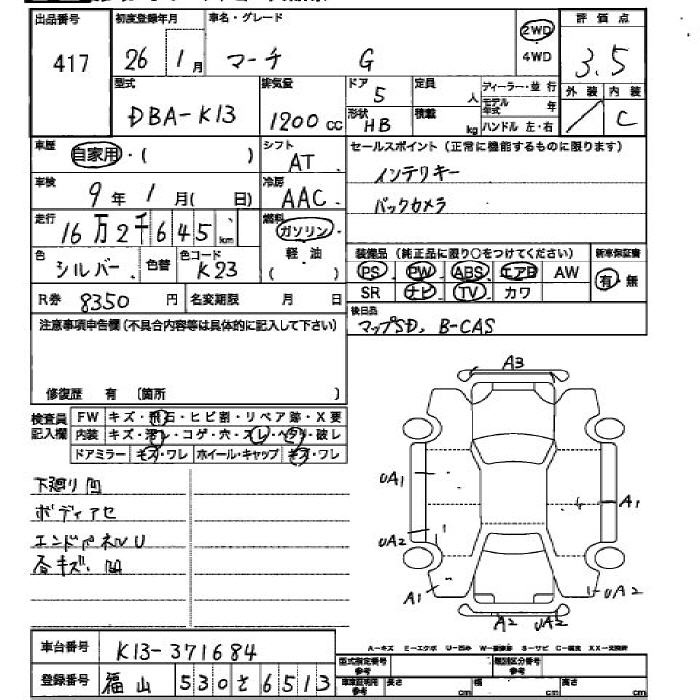 出品番号 417
初度登録年月 26 1月
車名・グレード マーチ G
2WD 4WD
評価点 3.5
外装 内装 C
型式 DBA-K13
排気量 1200 cc
ドア 5
形状 HB
定員 人
積載 kg
ディーラー・並行
モデル年式 年
ハンドル 左・右
車歴 自家用・( )
シフト AT
セールスポイント (正常に機能するものに限ります)
インテリキー
バックカメラ
車検 9年1月( 日)
冷房 AAC
走行 16万2千645km
燃料 ガソリン・軽油 ( )
色 シルバー
色替
色コード K23
装備品 (純正品に限り○をつけてください)
新車保証書 有・無
PS PW ABS エアB AW
SR ナビ TV カワ
R券 8350円
名変期限 月 日
後日品 マップSD, B-CAS
注意事項申告欄(不具合内容等は具体的に記入して下さい)
修復歴 有 〔箇所 〕
検査員記入欄
FW キズ・飛石・ヒビ割・リペア跡・X要
内装 キズ・汚レ・コゲ・穴・スレ・ヘタリ・破レ
ドアミラー キズ・ワレ ホイール・キャップ キズ・ワレ
下廻り凹
ボディアセ
エンドパネルU
各キズ.凹
A3
UA1
A1
UA2
A1
UA2
A2 UA2
車台番号 K13-371684
登録番号 福山 530さ6513
A－キズ E－エクボ U－凹み
型式指定番号参考
類別区分番号参考
車庫証明用参考 長さ cm 幅 cm 高さ cm